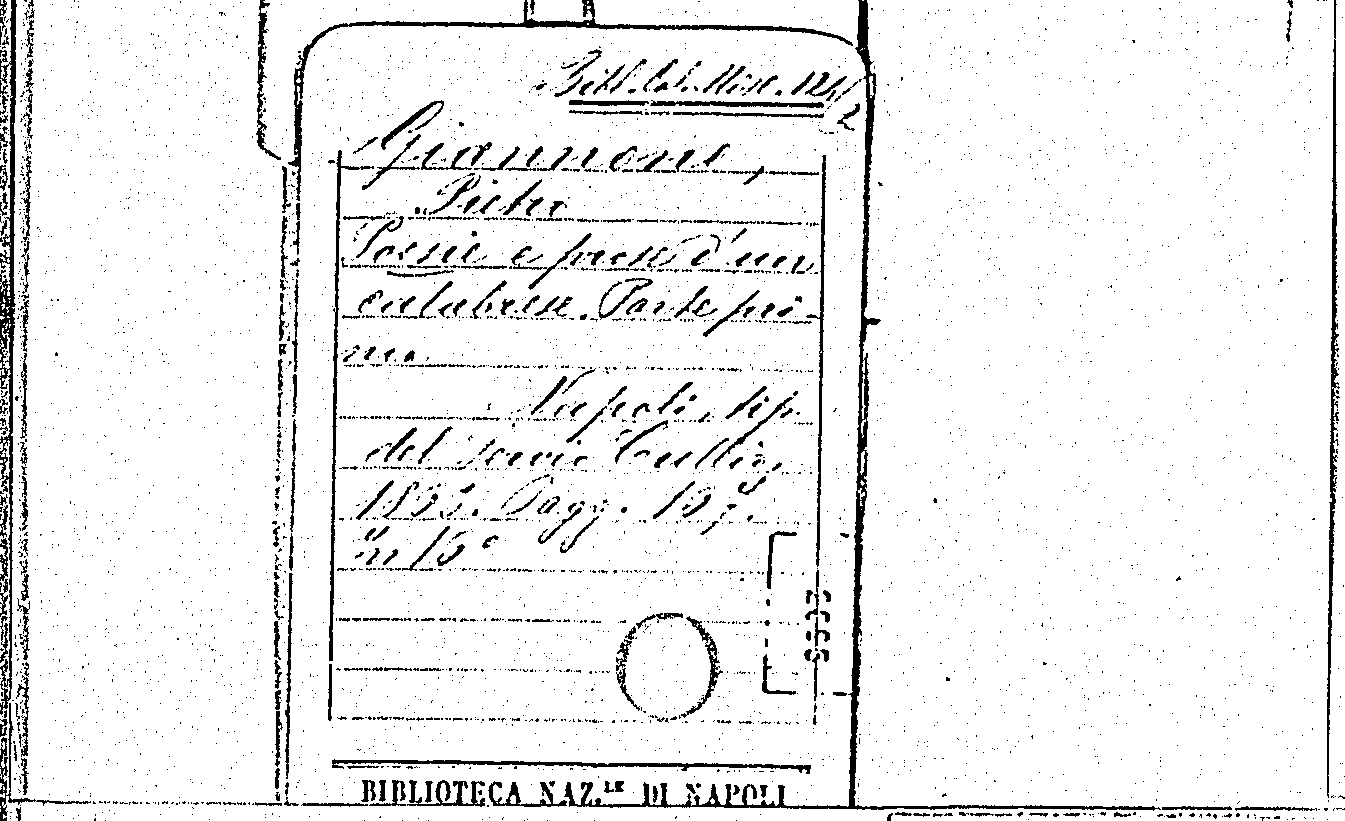 Bibl. Cal. Misc. 124/2
Giannone,
Pietro
Poesie e prose d'un
calabrese. Parte pri-
ma.
Napoli, tip.
del Servio Tullio,
Pagg.
in 16°
BIBLIOTECA NAZ.LE DI NAPOLI